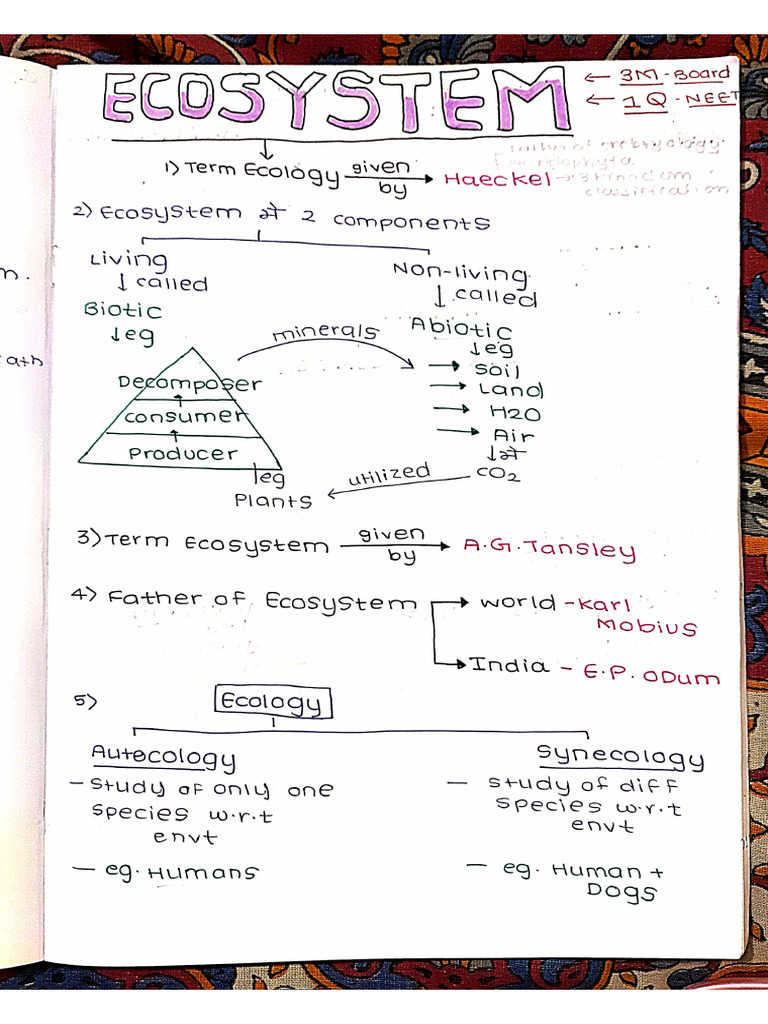 ECOSYSTEM
← 3M - Board
← 1Q - NEET
1) Term Ecology given by → Haeckel
classification
2) Ecosystem 2 components
Living
↓ called
Biotic
↓ eg
Non-living
↓ called
Abiotic
↓ eg
→ Soil
→ Land
→ H2O
→ Air
↓
CO2
minerals
Decomposer
consumer
Producer
eg
Plants
utilized
3) Term Ecosystem given by → A.G. Tansley
4) Father of Ecosystem → World - Karl
Mobius
→ India - E.P. ODUM
5) Ecology
Autecology
- Study of only one
species w.r.t
envt
- eg. Humans
Synecology
- study of diff
species w.r.t
envt
- eg. Human +
DOGS